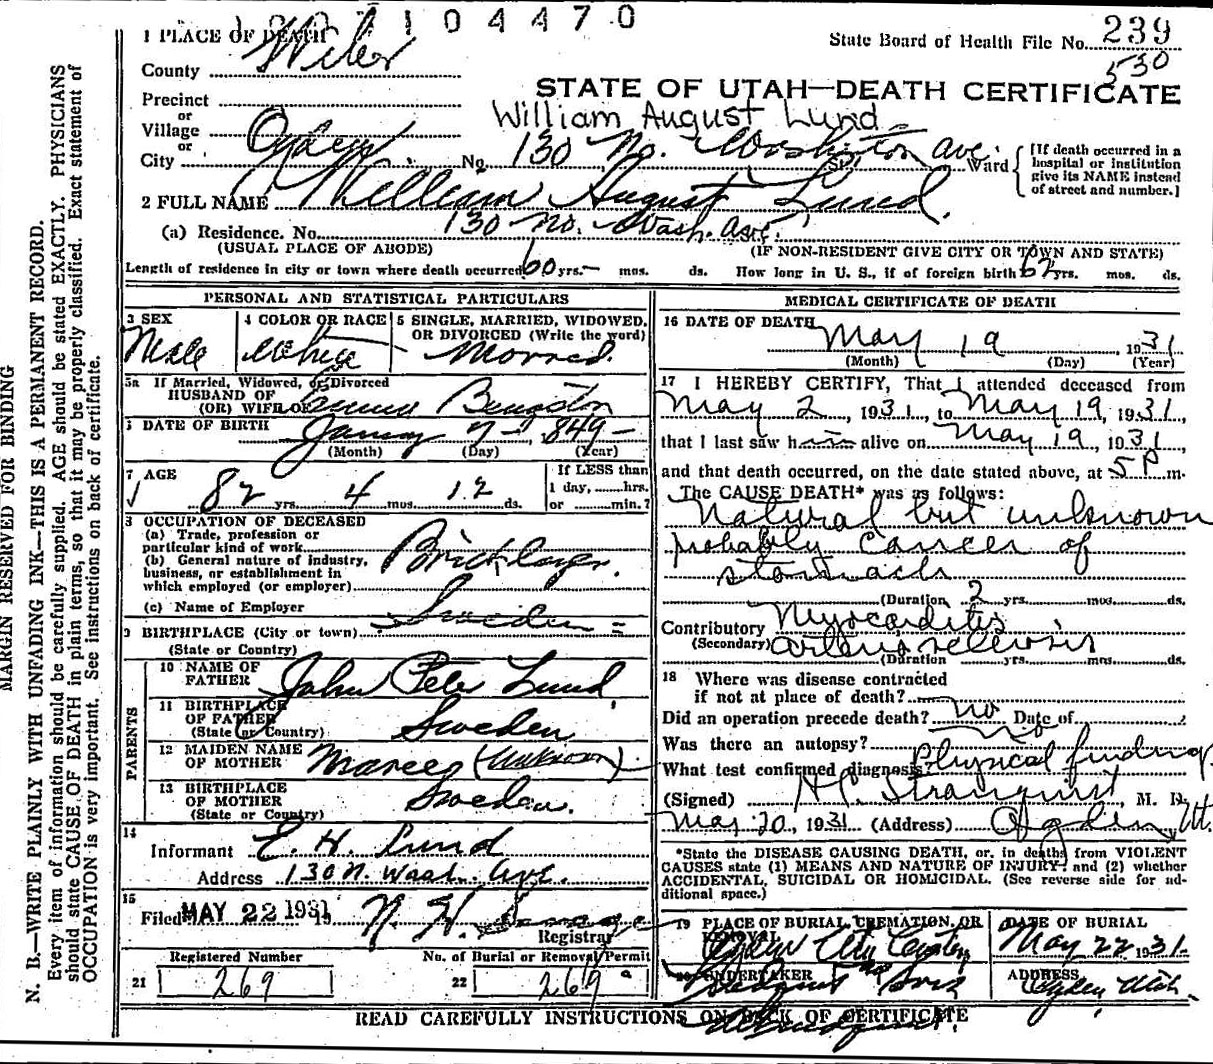 7 1 0 4 4 7 0
1 PLACE OF DEATH
State Board of Health File No. 239
530
County Weber
STATE OF UTAH—DEATH CERTIFICATE
Precinct
or
Village
William August Lund
or
City Ogden No. 130 No. Washington ave. St. Ward
[If death occurred in a
hospital or institution
give its NAME instead
of street and number.]
2 FULL NAME William August Lund.
(a) Residence. No. 130 No. Wash. Ave.
(USUAL PLACE OF ABODE) (IF NON-RESIDENT GIVE CITY OR TOWN AND STATE)
Length of residence in city or town where death occurred 60 yrs. – mos. ds. How long in U. S., if of foreign birth 62 yrs. mos. ds.
PERSONAL AND STATISTICAL PARTICULARS
3 SEX
Male
4 COLOR OR RACE
White
5 SINGLE, MARRIED, WIDOWED,
OR DIVORCED (Write the word)
Married.
5a If Married, Widowed, or Divorced
HUSBAND OF
(OR) WIFE OF Emma Bengston
6 DATE OF BIRTH January 7 – 1849 –
(Month) (Day) (Year)
7 AGE
82 yrs. 4 mos. 12 ds.
If LESS than
1 day, ........hrs.
or ........min.?
8 OCCUPATION OF DECEASED
(a) Trade, profession or
particular kind of work
(b) General nature of industry,
business, or establishment in
which employed (or employer)
Bricklayer.
(c) Name of Employer
9 BIRTHPLACE (City or town) Sweden =
(State or Country)
PARENTS
10 NAME OF
FATHER John Peter Lund
11 BIRTHPLACE
OF FATHER
(State or Country) Sweden
12 MAIDEN NAME
OF MOTHER (Unknown)
13 BIRTHPLACE
OF MOTHER
(State or Country) Sweden.
14
Informant E. H. Lund
Address 130 N. Wash. Ave.
15
Filed MAY 22 1931 19
Registrar
Registered Number
21 269
No. of Burial or Removal Permit
22 269
MEDICAL CERTIFICATE OF DEATH
16 DATE OF DEATH
May 19, 1931
(Month) (Day) (Year)
17 I HEREBY CERTIFY, That I attended deceased from
May 2, 1931, to May 19, 1931,
that I last saw him alive on May 19, 1931,
and that death occurred, on the date stated above, at 5 P m.
The CAUSE DEATH* was as follows:
Natural but unknown
probably cancer of
stomach
(Duration 2 yrs. mos. ds.
Contributory Myocarditis
(Secondary)
(Duration yrs. mos. ds.
18 Where was disease contracted
if not at place of death?
Did an operation precede death? no Date of
Was there an autopsy? No
What test confirmed diagnosis? Physical findings
(Signed) Stranquist, M. D.
May 20, 1931 (Address) Ogden, Ut.
*State the DISEASE CAUSING DEATH, or, in deaths from VIOLENT
CAUSES state (1) MEANS AND NATURE OF INJURY; and (2) whether
ACCIDENTAL, SUICIDAL OR HOMICIDAL. (See reverse side for ad-
ditional space.)
19 PLACE OF BURIAL, CREMATION, OR
REMOVAL
Ogden City Cemetery
DATE OF BURIAL
May 22 1931.
20 UNDERTAKER
Lindquist & Sons
ADDRESS
Ogden, Utah.
READ CAREFULLY INSTRUCTIONS ON BACK OF CERTIFICATE
MARGIN RESERVED FOR BINDING
N. B.—WRITE PLAINLY WITH UNFADING INK—THIS IS A PERMANENT RECORD.
Every item of information should be carefully supplied. AGE should be stated EXACTLY. PHYSICIANS
should state CAUSE OF DEATH in plain terms, so that it may be properly classified. Exact statement of
OCCUPATION is very important. See instructions on back of certificate.